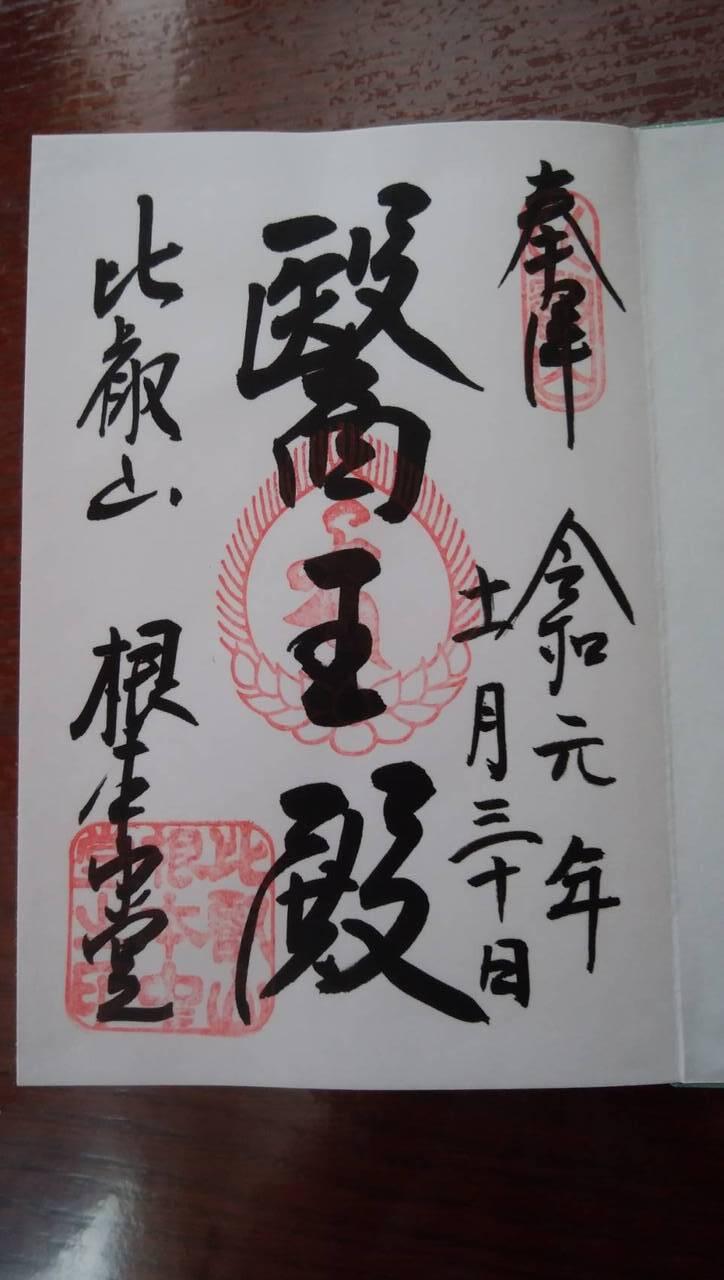 奉拝
令和元年
十一月三十日
醫王殿
比叡山 根本中堂
比叡山
根本中
堂之印